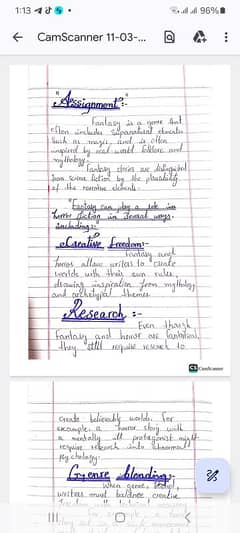 1:13
96%
CamScanner 11-03-...
"Assignment":-
Fantasy is a genre that
often includes supernatural elements
such as magic, and is often
inspired by real world folklore and
mythology.
Fantasy stories are distinguished
from science fiction by the plausibility
of the narrative elements.
"Fantasy can play a role in
horror fiction in several ways.
including:"
Creative freedom:-
Fantasy and
horror allows writers to create
worlds with their own rules,
drawing inspiration from mythology
and archetypal themes.
Research :-
Even though
Fantasy and horror are fantastical,
they still require research to
CS CamScanner
create believable worlds. For
example, a horror story with
a mentally ill protagonist might
require research into abnormal
psychology.
blending:-
When genres,
writers must balance creative